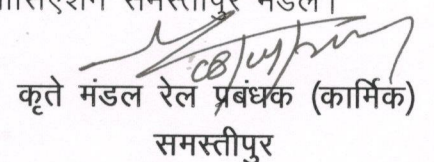 समस्तीपुर मंडल।
कृते मंडल रेल प्रबंधक (कार्मिक)
समस्तीपुर